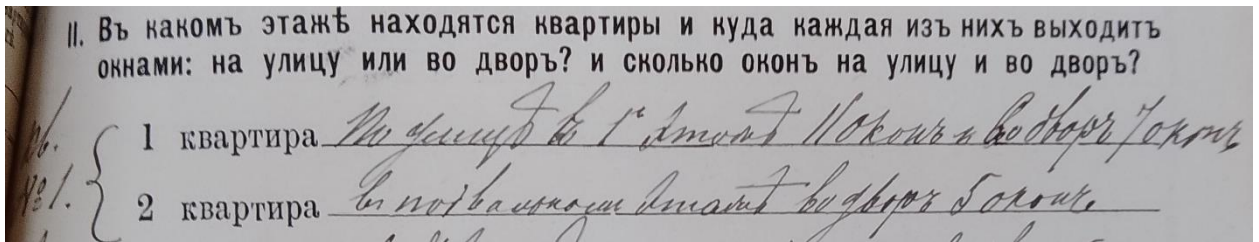 II. Въ какомъ этажѣ находятся квартиры и куда каждая изъ нихъ выходитъ
окнами: на улицу или во дворъ? и сколько оконъ на улицу и во дворъ?
1 квартира По улицѣ въ 1м этажѣ 11 оконъ и во дворъ 7 оконъ
№1.
2 квартира въ подвальномъ этажѣ во дворъ 5 оконъ.